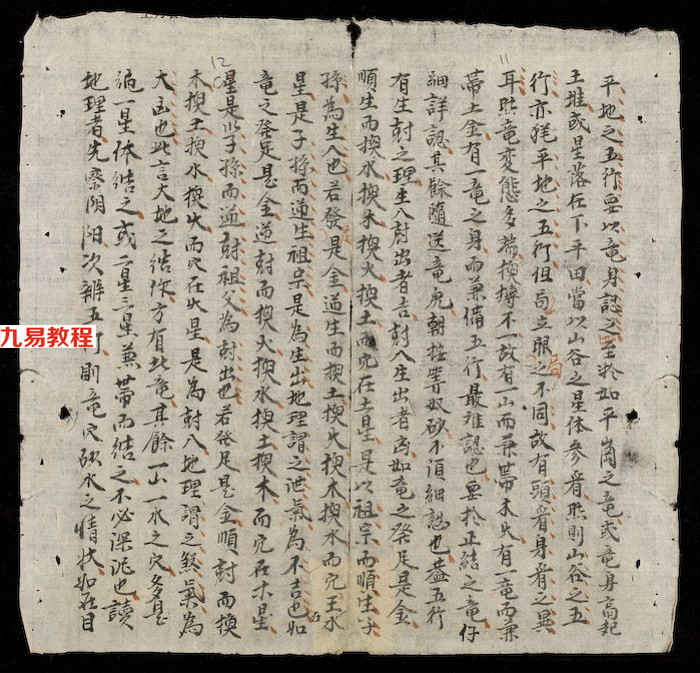 平地之五行要以竜身認之至於如平崗之竜或竜身高起
土堆或星落在下平田當以山谷之星体參看然則山谷之五
行亦猶平地之五行但局立服之不同故有頭看身看之異
耳然竜変態多端換搏不一故有一山而兼帶木火有一竜而兼
帶土金有一竜之身而兼備五行最难認也要於正結之竜仔
細詳認其餘隨送竜虎朝按等奴砂不須細認也盖五行
有生尅之理生入尅出者吉尅入生出者凶如竜之發足是金
順生而換水換木換火換土而穴在土星是以祖宗而順生子
孫為生入也若發足金逆生而換土換火換木換水而穴王水
星是子孫而逆生祖宗是為生出地理謂之泄氣為不吉也如
竜之發足是金逆尅而換火換水換土換木而穴在木星
星是以子孫而逆尅祖父為尅出也若發足是金順尅而換
木換土換水換火而穴在火星是為尅入地理謂之煞氣為
大凶也此言大地之結作方有此竜其餘一山一水之穴多是
一星体結之或二星三星兼帶而結之不必深泥也讀
地理者先察阴阳次辨五行則竜穴砂水之情状如在目
11
12
九易教程